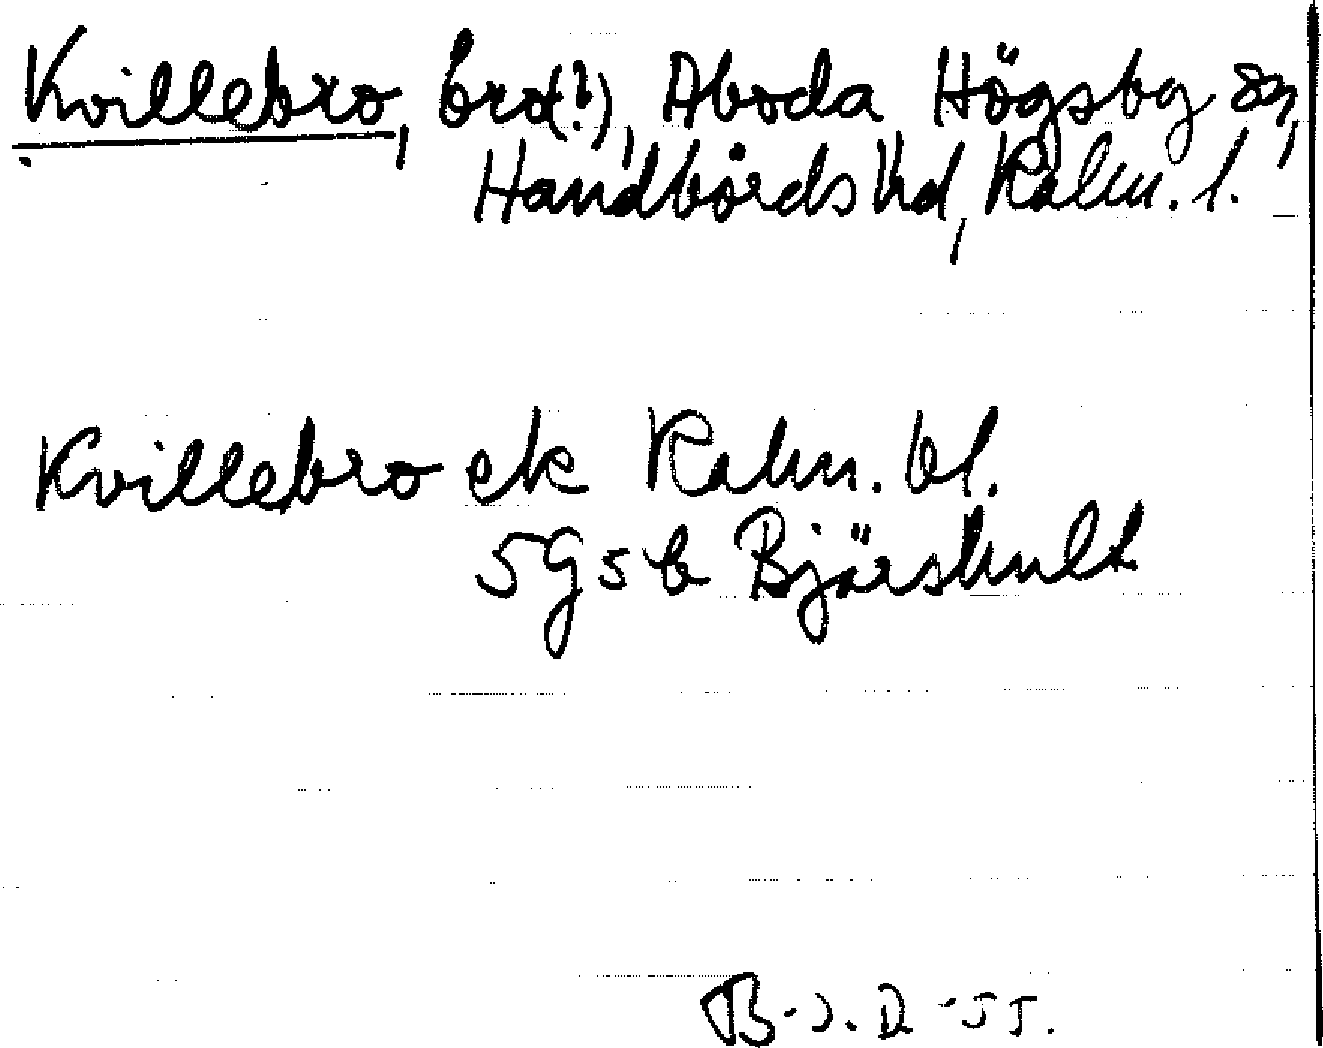 Kvillebro, brd(?), Aboda Högsby sn,
Handbörds hd, Kalm. l.
Kvillebro ek Kalm. bl.
5G5b Björshult
B-J.D-55.